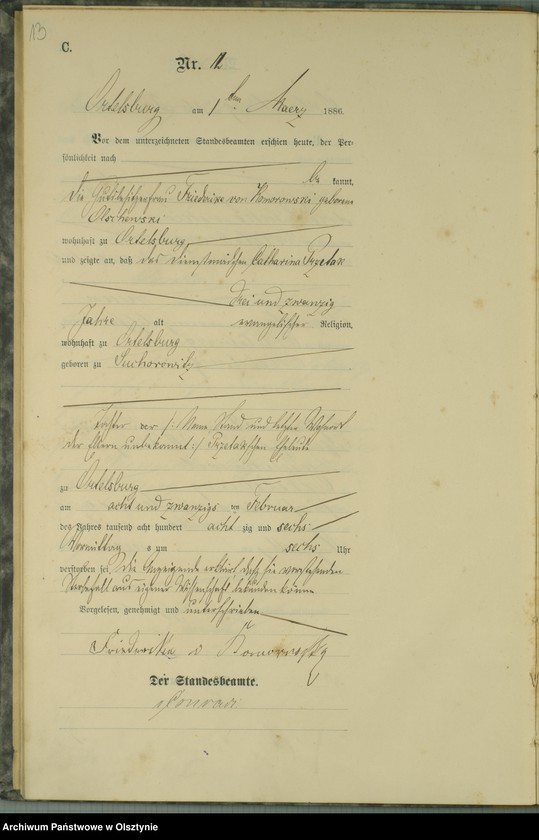 13
C.
Nr. 12
Ortelsburg am 1ten Maerz 1886.
Vor dem unterzeichneten Standesbeamten erschien heute, der Per-
sönlichkeit nach
be kannt,
die Gutsbesitzerfrau Friedrike von Komorowski geborene
Olschewski
wohnhaft zu Ortelsburg
und zeigte an, daß das Dienstmädchen Catharina Przetak
drei und zwanzig
Jahre alt evangelischer Religion,
wohnhaft zu Ortelsburg
geboren zu Suchorowitz
Tochter der /: Name, Stand und letzter Wohnort
der Eltern unbekannt :/ Przetak'schen Eheleute
zu Ortelsburg
am acht und zwanzigs ten Februar
des Jahres tausend acht hundert acht zig und sechs
Vormittag s um sechs Uhr
verstorben sei, die Anzeigende erklärt daß sie vorstehenden
Sterbefall aus eigener Wissenschaft bekunden könne
Vorgelesen, genehmigt und unterschrieben
Friedericke v Komorowsky
Der Standesbeamte.
Archiwum Państwowe w Olsztynie